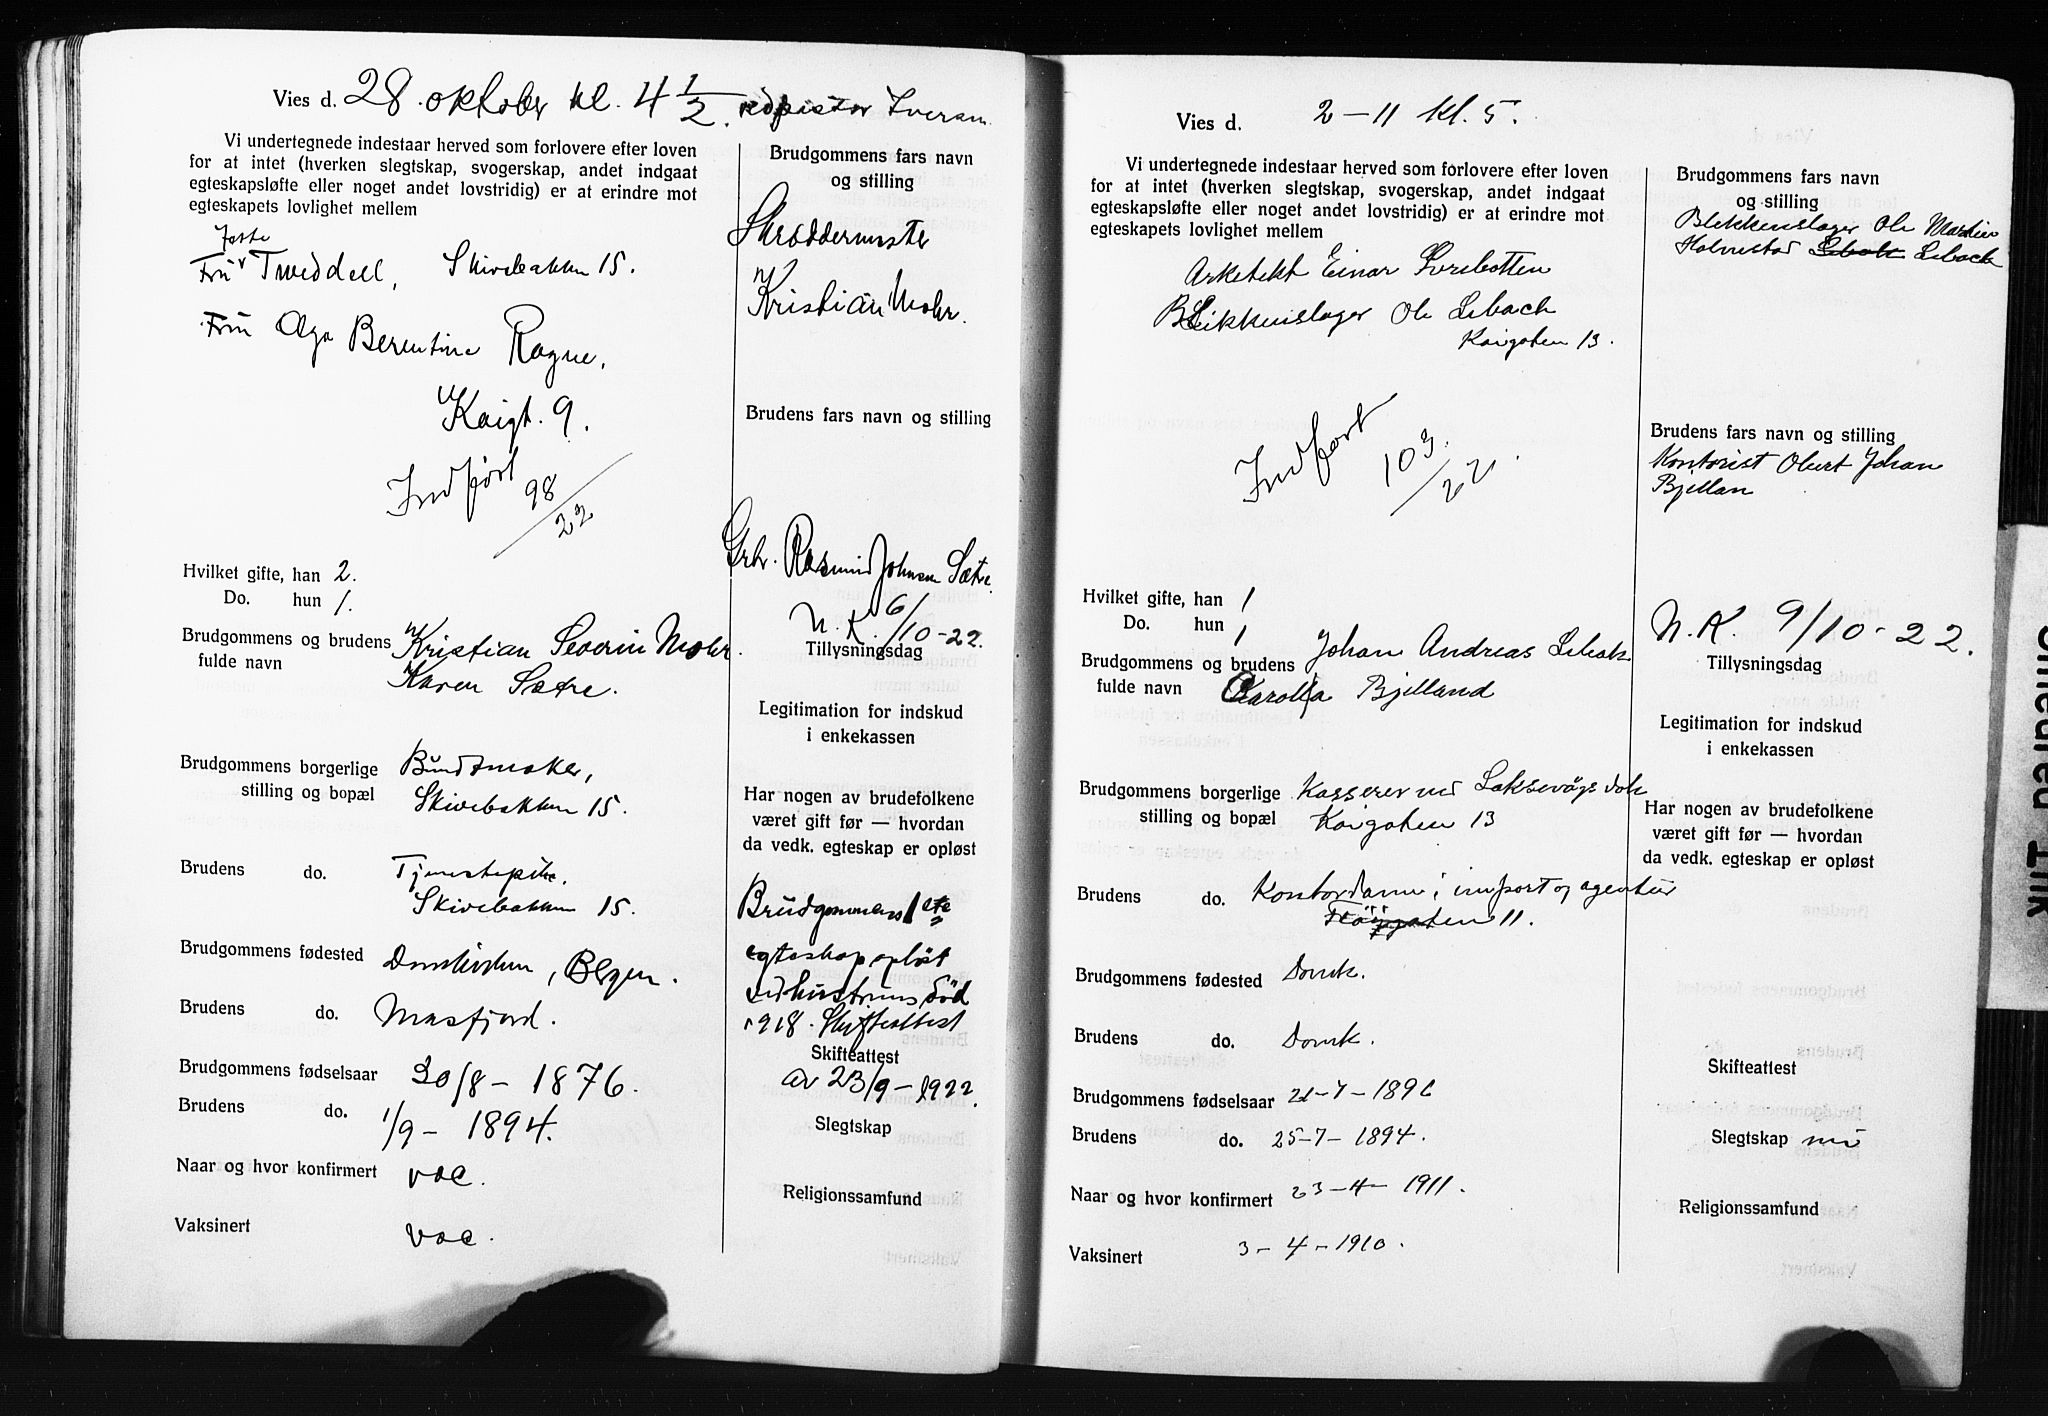 Vies d. 28. oktober kl. 4 1/2. ved pastor
Vi undertegnede indestaar herved som forlovere efter loven
for at intet (hverken slegtskap, svogerskap, andet indgaat
egteskapsløfte eller noget andet lovstridig) er at erindre mot
egteskapets lovlighet mellem
Fru Tweddell, Skivebakken 15.
Fru Aga Berentine Ragne,
Kaigt. 9.
Indført 98/22
Hvilket gifte, han 2.
Do. hun 1.
Brudgommens og brudens Kristian Severin Mohr.
fulde navn Karen Sætre.
Brudgommens borgerlige Bundtmaker,
stilling og bopæl Skivebakken 15.
Brudens do. Tjenestepike.
Skivebakken 15.
Brudgommens fødested Domkirken, Bergen.
Brudens do. Masfjord.
Brudgommens fødselsaar 30/8 - 1876.
Brudens do. 1/9 - 1894.
Naar og hvor konfirmert vac.
Vaksinert vac.
Brudgommens fars navn
og stilling
Skræddermester
Kristian Mohr.
Brudens fars navn og stilling
Grbr. Rasmus Johnsen Sætre
N. K. 6/10-22.
Tillysningsdag
Legitimation for indskud
i enkekassen
Har nogen av brudefolkene
været gift før — hvordan
da vedk. egteskap er opløst
Brudgommens 1ste
egteskap opløst
ved hustruens død
1918. Skifteattest
Skifteattest
av 23/9 - 1922.
Slegtskap
Religionssamfund
Vies d. 2-11 kl. 5.
Vi undertegnede indestaar herved som forlovere efter loven
for at intet (hverken slegtskap, svogerskap, andet indgaat
egteskapsløfte eller noget andet lovstridig) er at erindre mot
egteskapets lovlighet mellem
Arkitekt Einar
Blikkenslager Ole Lebach
Kaigaten 13.
Indført 103/22.
Hvilket gifte, han 1
Do. hun 1
Brudgommens og brudens Johan Andreas Leback
fulde navn Carolla Bjelland
Brudgommens borgerlige Kasserer ved Laksevågs dok
stilling og bopæl Kaigaten 13
Brudens do. Kontordame i import og agentur
11.
Brudgommens fødested Domk.
Brudens do. Domk.
Brudgommens fødselsaar 21-7-1896
Brudens do. 25-7-1894.
Naar og hvor konfirmert 23-4-1911.
Vaksinert 3-4-1910.
Brudgommens fars navn
og stilling
Blikkenslager Ole Martin
Lebach
Brudens fars navn og stilling
Kontorist Obert Johan
Bjellan
N. K. 9/10-22.
Tillysningsdag
Legitimation for indskud
i enkekassen
Har nogen av brudefolkene
været gift før — hvordan
da vedk. egteskap er opløst
Skifteattest
Slegtskap nei
Religionssamfund